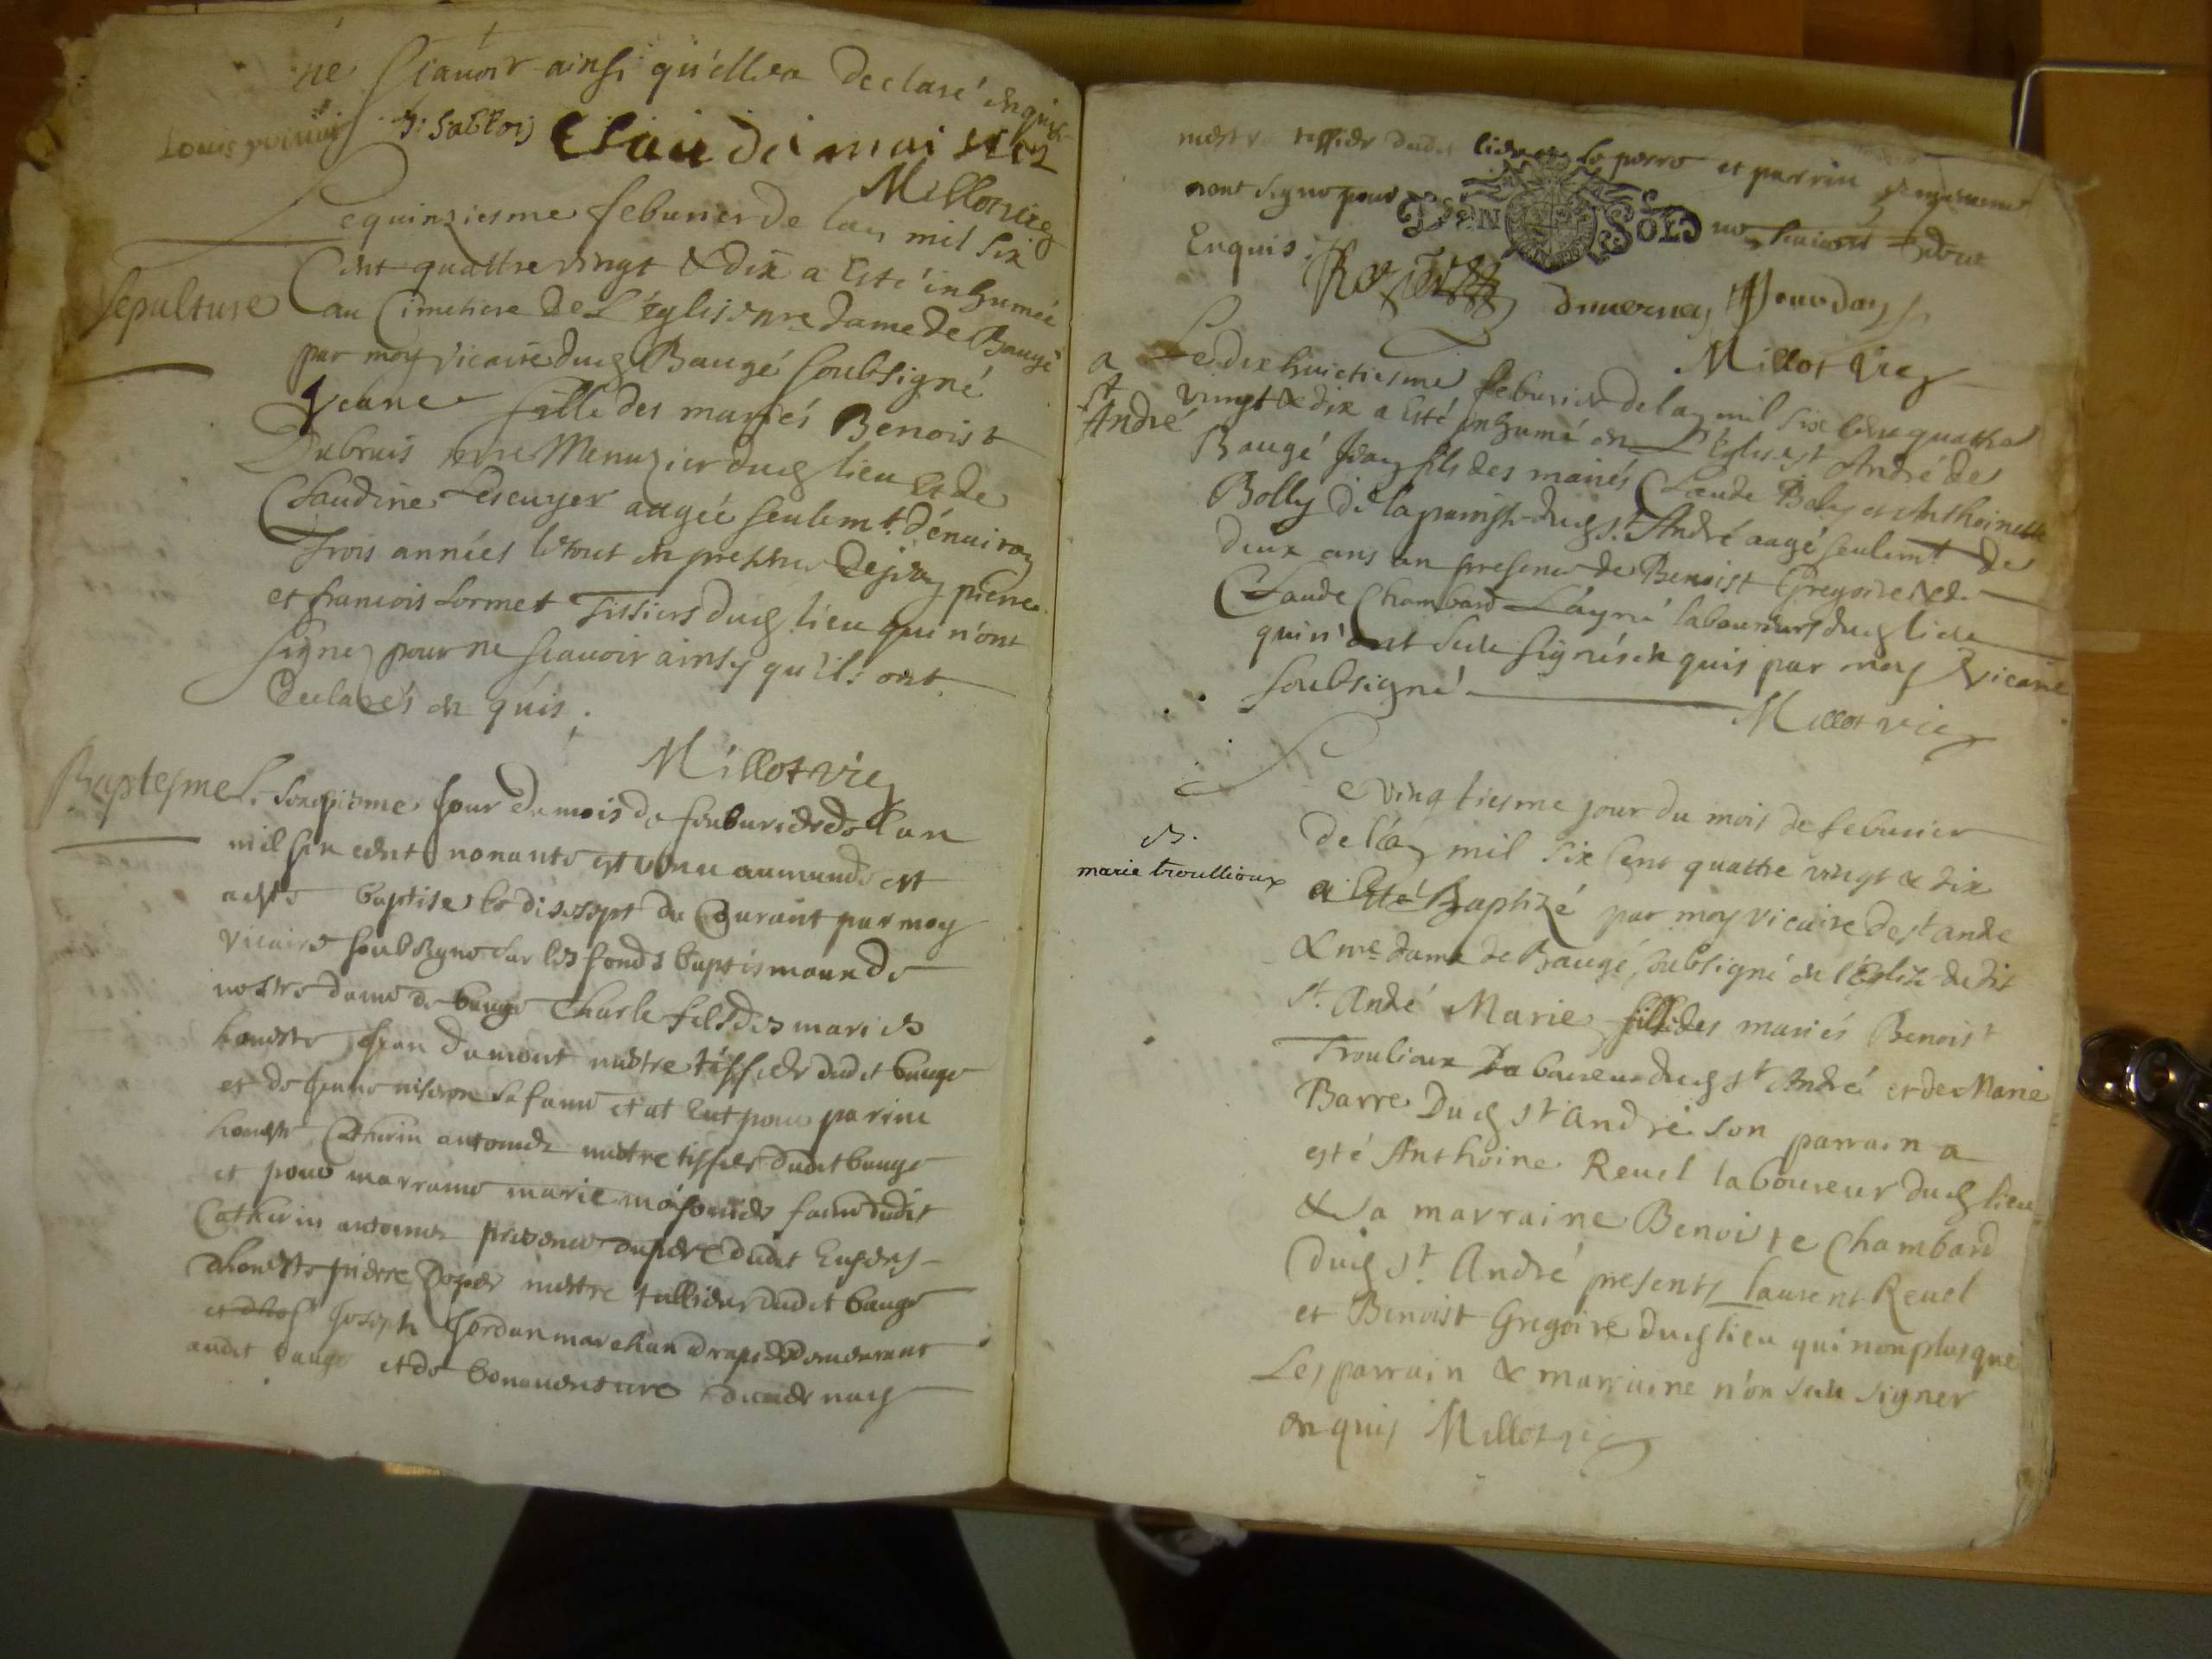 ne sçavoir ainsi qu'elle a declaré enquis
Louis J. Sabloy Claude
Millot vicr
Le quinziesme febvrier de lan mil six
Cent quattre vingt & dix a Esté inhumée
Sepulture
au Cimetiere De L'églis nre dame de Baugé
par moy vicaire dud Baugé soubsigné
Jeane fille des mariés Benoist
Dubruis mre Menuzier dud lieu et de
Claudine Lescuyer augée seulemt d'énuiron
Trois années le tout en presence De jean pierre
et francois Lormet Tissiers dud lieu qui n'ont
signez pour ne scauoir ainsy qu'ils ont
Declarés en quis ;
Millot vicr
Baptesme
Le seszieme Jour du mois de feuburier de l'an
mil six cent nonante est venu au munde et
a esté baptise le disesept du Courant par moy
vicaire soubsigne sur les fonds baptismaux de
nostre dame de bauge Charle fils des maries
honeste Jean dumont mestre tissier dudit bauge
et de sa fame et at Eut pour parin
honeste Catherin antoine mestre tissier dudit bauge
et pour marraine marie fame dudit
Catherin antoine presence du pere dudit Enfens
dhoneste pierre mestre tallieur dudit bauge
et Joseph Jordan marchan drapier demeurant
audit bauge et de bonauenture duuernay
mestre tissier dudit lieu et le perre et parrin
nont signe pour DEN SOLS
Enquis.
duuerney Jourdan
Millot vicr
a
st
André
Le dix huictiesme feburier de lan mil six Cens quattre
vingt & dix a Esté inhumé en L'Eglise st André de
Baugé Jean fils des mariés Claude Bolly et Anthoinette
Bolly de la paroisse dud st. André augé seulemt de
deux ans en presence de Benoist Gregoire & de
Claude Chambard L'ayné laboureurs dud lieu
qui n'ont sceu signés en quis par moy vicaire
soubsigné
Millot vicr
B.
marie troullioux
Le vingtiesme jour du mois de feburier
de l'an mil six Cent quattre vingt & dix
a Esté Baptizé par moy vicaire de st andré
& nre dame de Baugé soubsigné en l'Eglise dudit
st. André Marie fille des mariés Benoist
Troulioux Laboureur dud st André et de Marie
Barre Dud st André son parrain a
esté Anthoine Reuel laboureur dud lieu
& sa marraine Benoiste Chambard
Dud st. André presents laurent Reuel
et Benoist Gregoire dud lieu qui non plus que
Les parrain & marraine n'on sceu signer
enquis Millot vicr